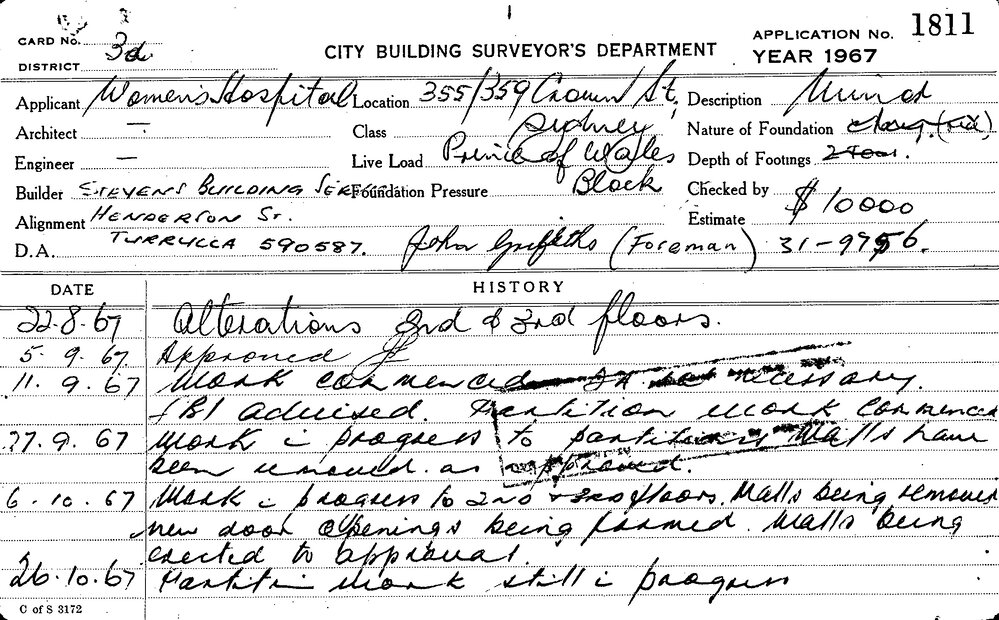 CARD No. 3d
APPLICATION No. 1811
CITY BUILDING SURVEYOR'S DEPARTMENT
DISTRICT
YEAR 1967
Applicant Womens Hospital Location 355/359 Crown St, Description
Architect — Class Sydney Nature of Foundation
Engineer — Live Load Prince of Wales Depth of Footings
Builder STEVENS BUILDING SERVICE Foundation Pressure Block Checked by
Alignment HENDERSON ST. Estimate $10000
D.A. TURRELLA 590587. John Griffiths (Foreman) 31-9756.
DATE HISTORY
22.8.67 Alterations 2nd & 3rd floors.
5.9.67 Approved
11.9.67 Work commenced necessary.
advised. Partition work commenced
27.9.67 Work in progress to partitions. Walls have
been removed as approved.
6.10.67 Work in progress to 2nd & 3rd floors. Walls being removed
new door openings being formed. Walls being
erected to approval.
26.10.67 Partition work still in progress
C of S 3172